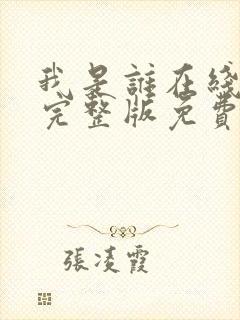 我是誰在綫
完整版免費
張凌霞